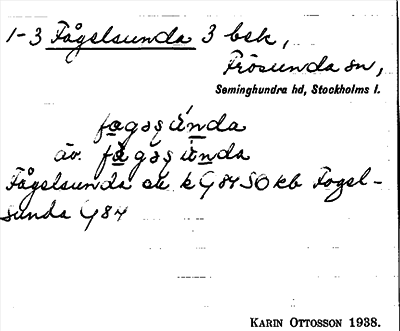 1-3 Fågelsunda 3 bsk,
Frösunda sn,
Seminghundra hd, Stockholms l.
fogəsúnda
äv. fågəsúnda
Fågelsunda ek G84SO kb Fogel-
sunda G84
KARIN OTTOSSON 1938.